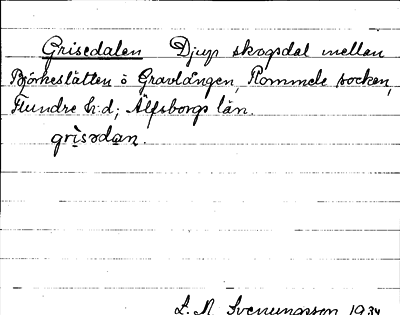 Grisedalen Djup skogsdal mellan
Björkeslätten o Gravlången, Rommele socken,
Flundre h:d; Älfsborgs län.
grìsədan.
L. M. Svenungsson 1934